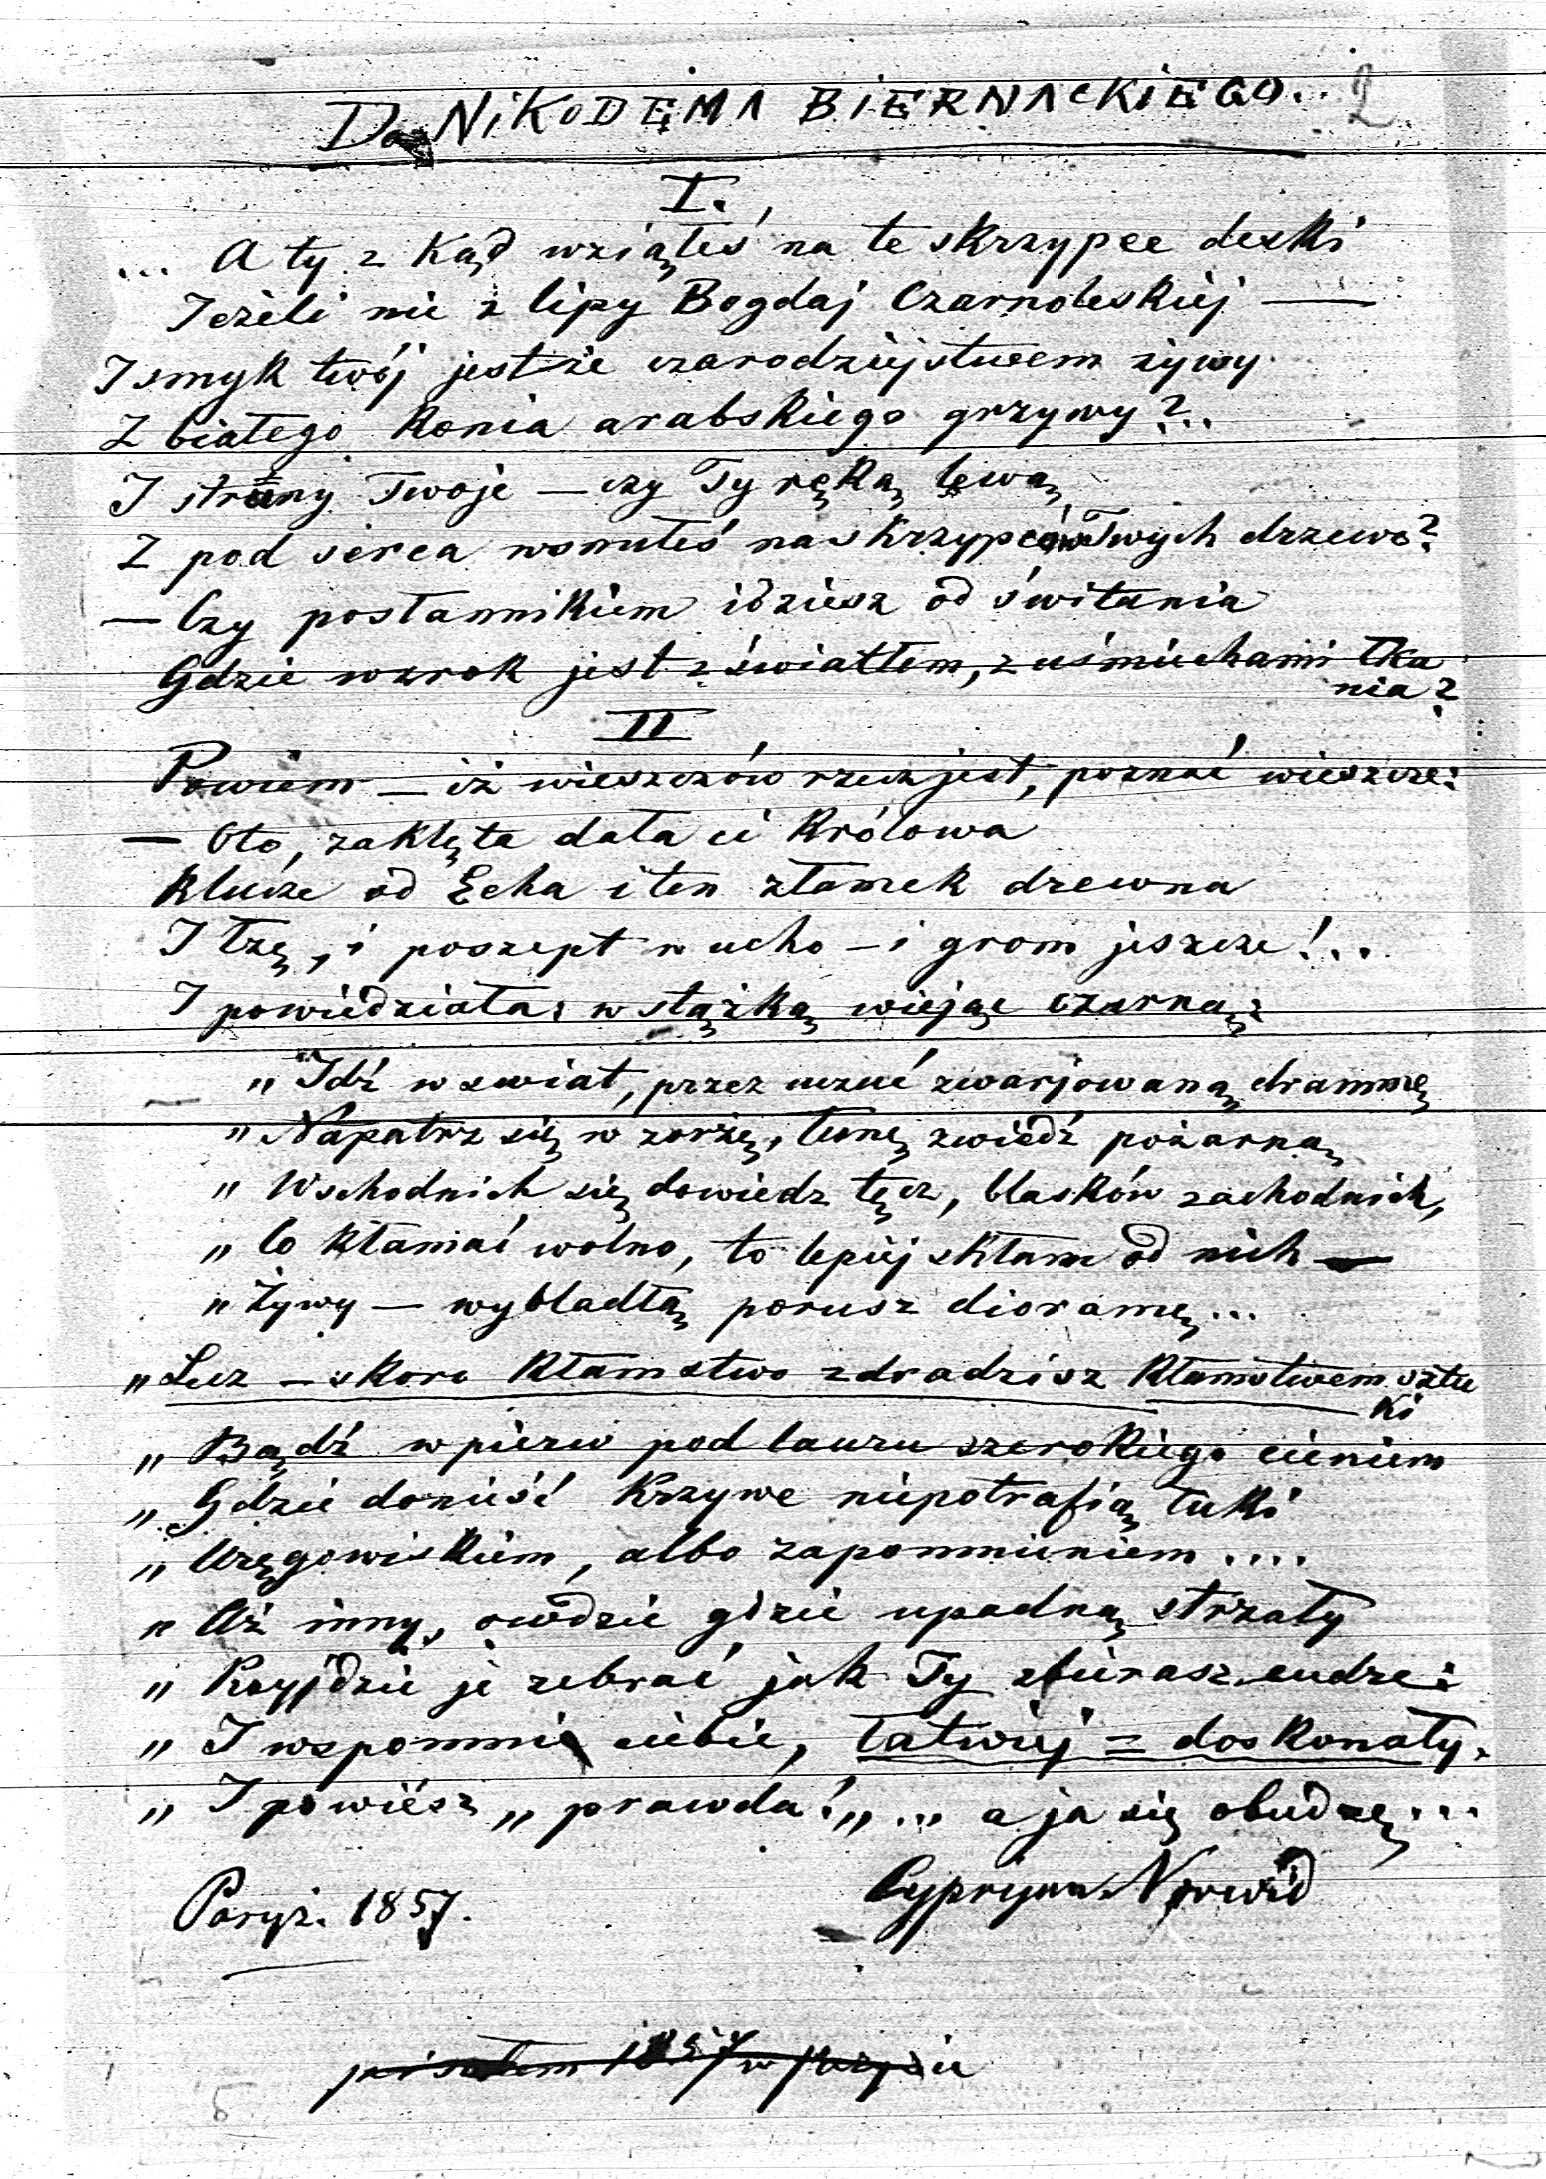 Do NIKODEMA BIERNACKIEGO.. 2
I.
... A ty z kąd wziąłeś na te skrzypce deski
Jeżeli nie z lipy Bogdaj Czarnoleskiej —
I smyk twój jestże czarodziejstwem żywy
Z białego konia arabskiego grzywy?..
I struny Twoje — czy Ty ręką lewą
Z pod serca wsnułeś na skrzypców Twych drzewo?
— Czy posłannikiem idziesz od świtania
Gdzie wzrok jest z światłem, z uśmiechami łka
nia?
II
Powiem — iż wieszczów rzecz jest, poznać wieszcze:
— Oto, zaklęta dała ci Królowa
Klucze od Echa i ten złamek drewna
I łzę, i poszept w ucho — i grom jeszcze!..
I powiedziała: wstążką wiejąc czarną:
„Idź w świat, przez uczuć zwarjowaną drammę
„Napatrz się w zorzę, łunę zwiedź pożarną
„Wschodnich się dowiedz tęcz, blasków zachodnich,
„Co kłamać wolno, to lepiej skłam od nich —
„Żywy — wybladłą porusz dioramę...
„Lecz — skoro kłamstwo zdradzisz kłamstwem sztu
ki
„Bądź w pierw pod lauru szerokiego cieniem
„Gdzie donieść krzywe niepotrafią łuki
„Uręgowiskiem, albo zapomnieniem....
„Aż inny, owdzie gdzie upadną strzały
„Przyjdzie je zebrać jak Ty zbierasz cudze:
„I wspomni ciebie, łatwiej = doskonały.
„I powiész „prawda!„... a ja się obudzę...
Paryż. 1857.
Cypryan Norwid
pisałem 1857 w Paryżu
5